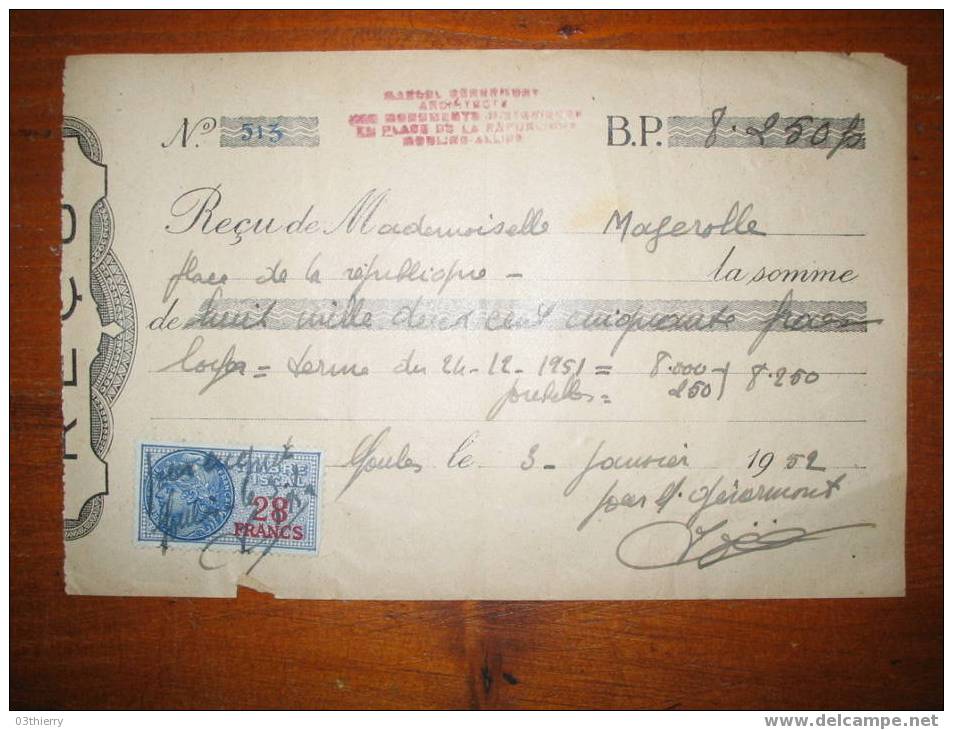 MARCEL
ARCHITECTE
DES MONUMENTS HISTORIQUES
PLACE DE LA REPUBLIQUE
MOULINS-ALLIER
Nº 513 B.P. 8.250 f
Reçu de Mademoiselle Magerolle
place de la république - la somme
de huit mille deux cent cinquante francs
terme du 24-12-1951 = 8.000
250 8.250
REÇU
le 3 Janvier 1952
TIMBRE
FISCAL
28
FRANCS
par
03thierry
www.delcampe.net